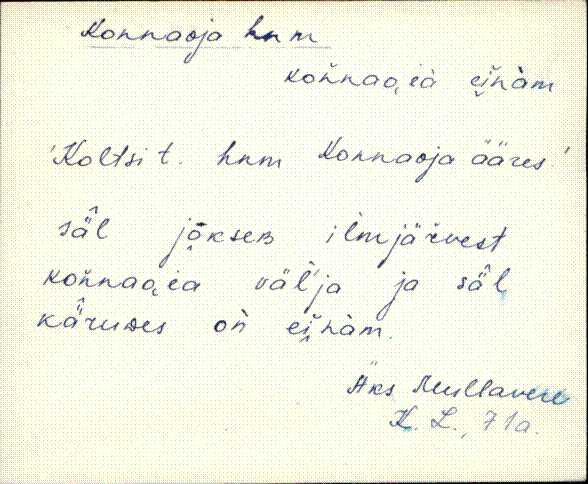 Konnaoja hnm
kon̆nao̭ià ei̭n̆àm
'Koltsi t. hnm Konnaoja ääres.'
säl jo̭kseʙ ilmjär̆vest
kon̆nao̭ia väl'ja ja säl
käruᴅes on̆ ei̭n̆àm.
Äks Mullavere
K. L., 71a.